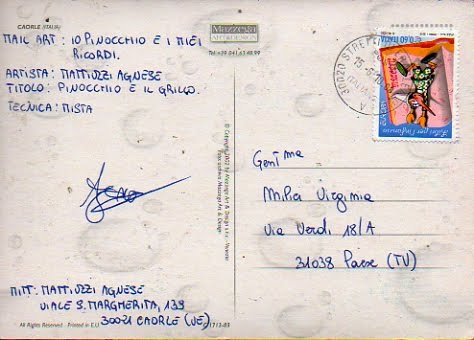 CAORLE (ITALIA)
MAIL ART: IO PINOCCHIO E I MIEI
RICORDI.
ARTISTA: MATTIUZZI AGNESE
TITOLO: PINOCCHIO E IL GRILLO.
TECNICA: MISTA
MITT: MATTIUZZI AGNESE
VIALE S. MARGHERITA, 139
30021 CAORLE (VE)
All Rights Reserved - Printed in E.U.
1713-03
Mazzega
ART & DESIGN
Tel +39 041.63 48 99
© Copyright 2002 by Mazzega Art & Design
30020
Gent.ma
Milia Virginia
Via Verdi 18/A
31038 Paese (TV)